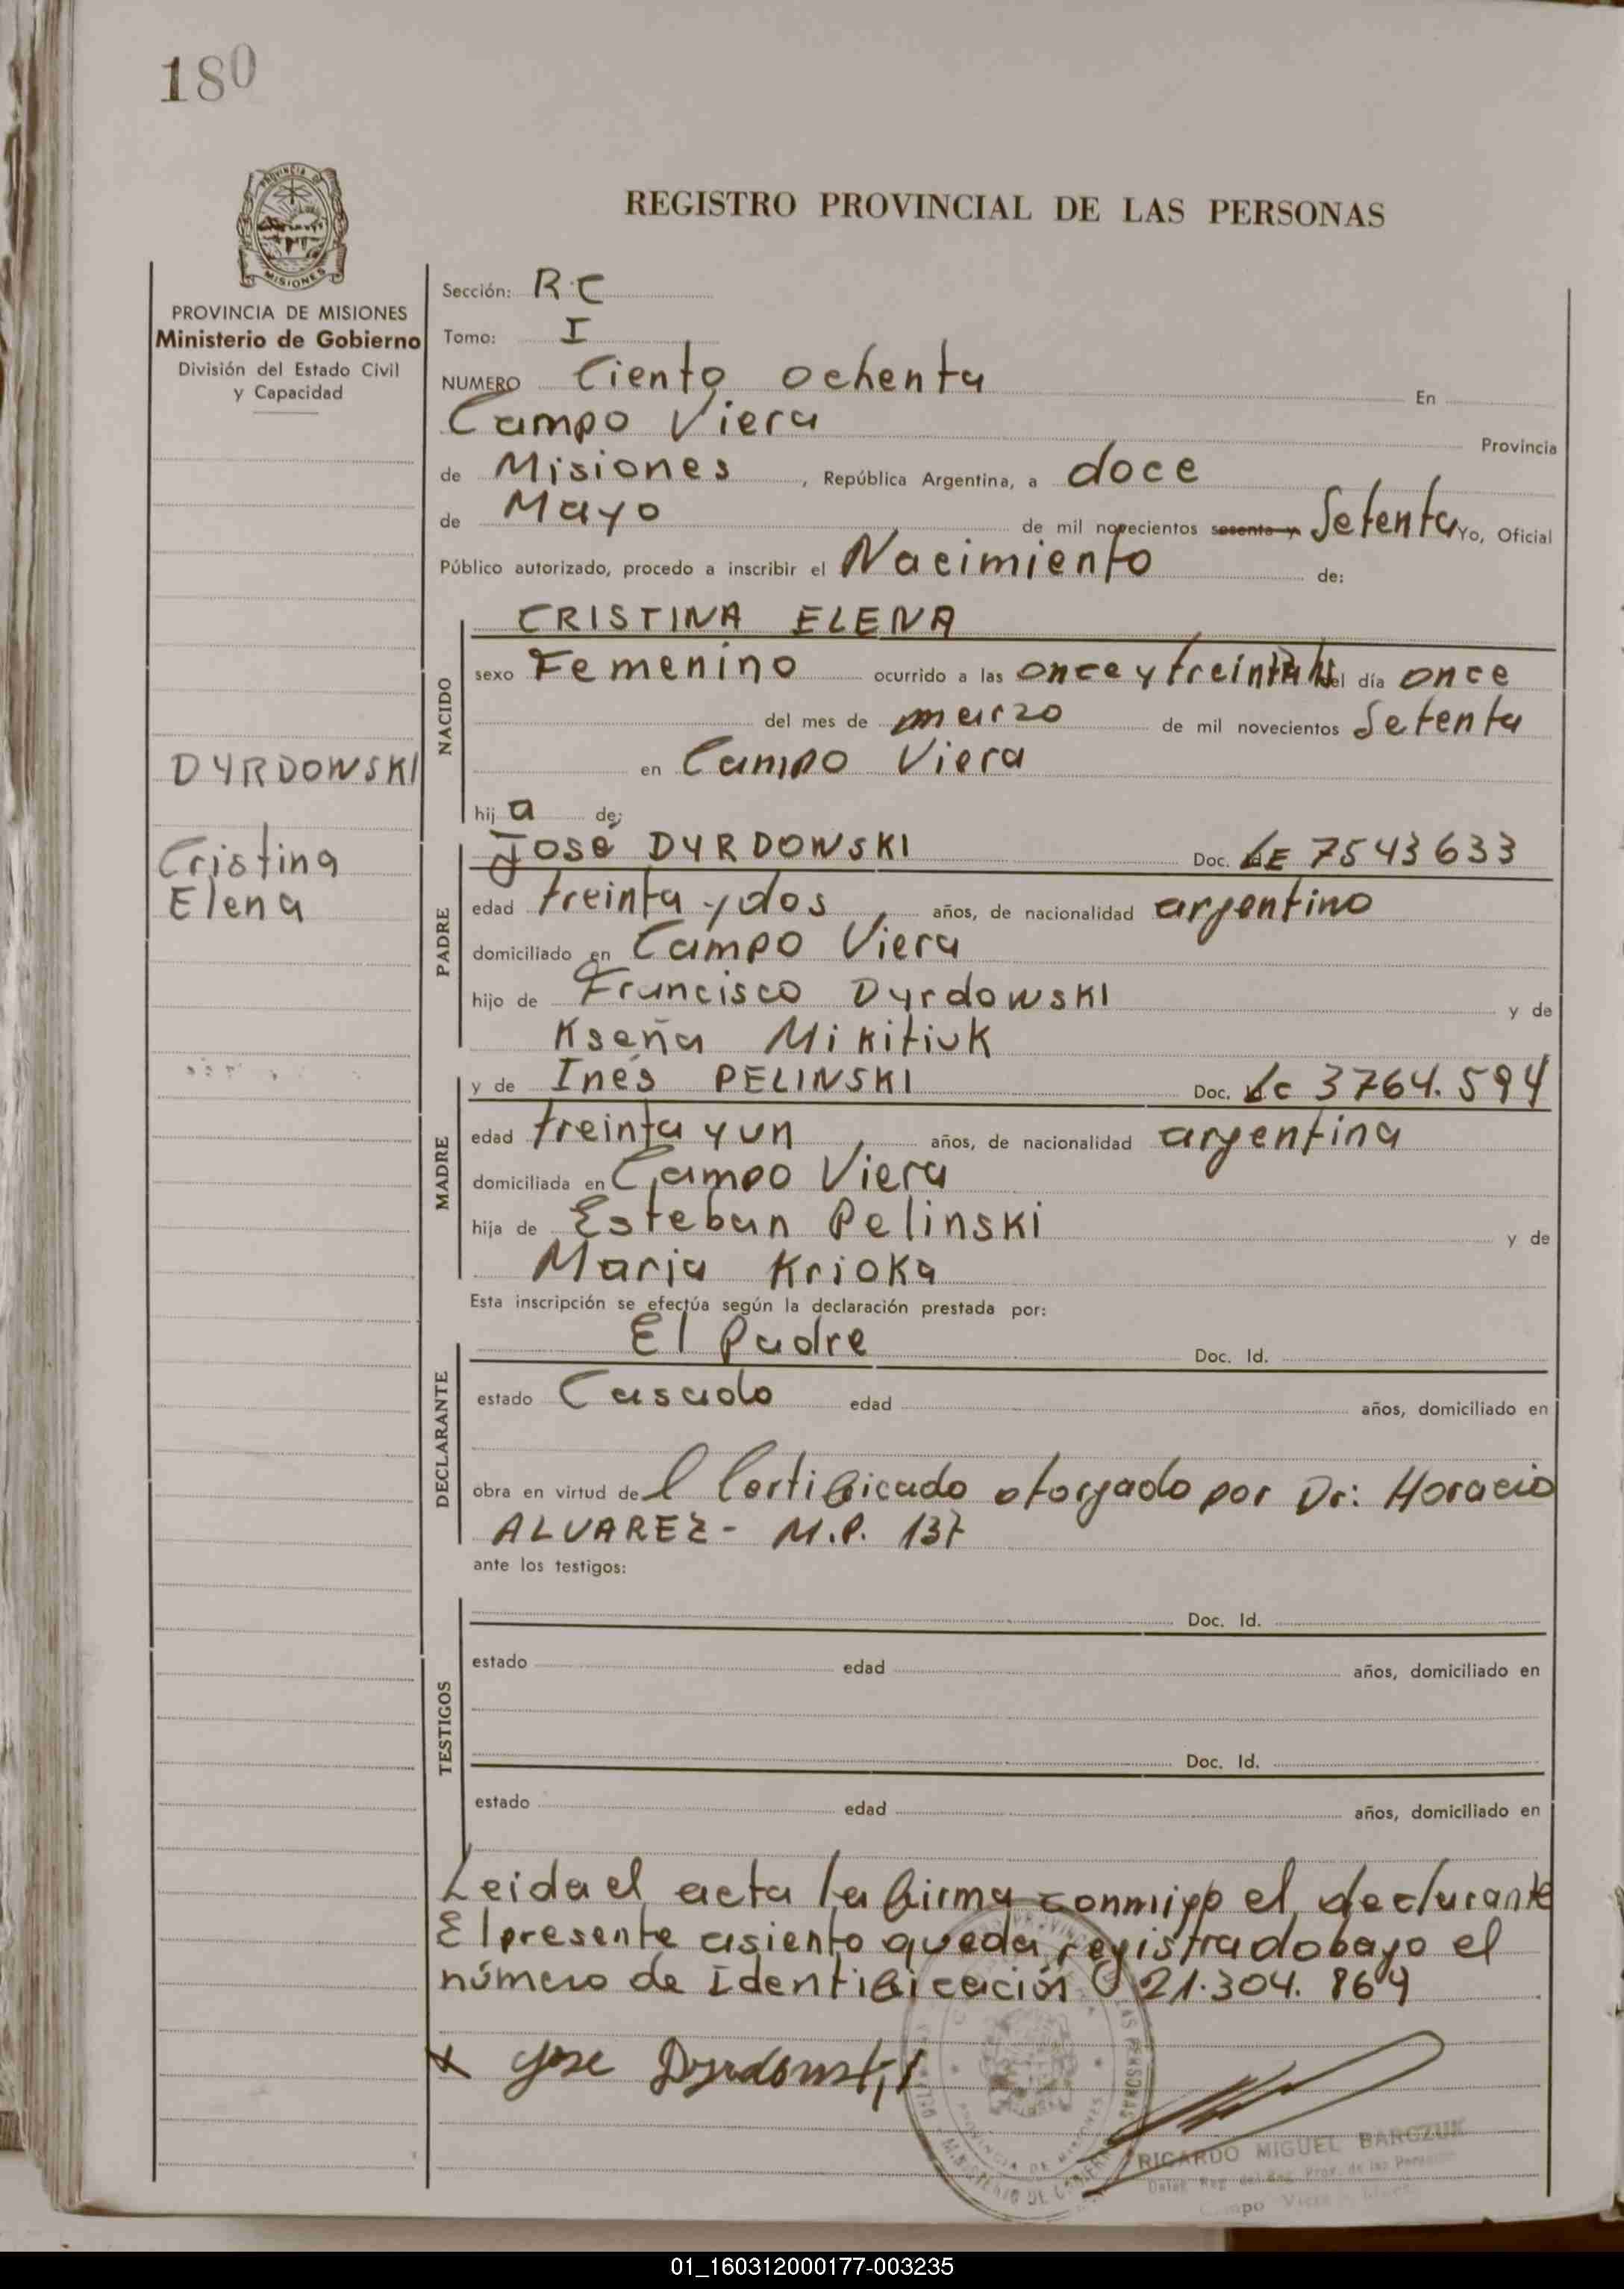 180
PROVINCIA DE MISIONES
Ministerio de Gobierno
División del Estado Civil
y Capacidad
DYRDOWSKI
Cristina
Elena
REGISTRO PROVINCIAL DE LAS PERSONAS
Sección: R.C
Tomo: I
NUMERO Ciento ochenta En
Campo Viera Provincia
de Misiones, República Argentina, a doce
de Mayo de mil novecientos sesenta y Setenta Yo, Oficial
Público autorizado, procedo a inscribir el Nacimiento de:
NACIDO
CRISTINA ELENA
sexo Femenino ocurrido a las once y treinta hs del día once
del mes de marzo de mil novecientos Setenta
en Campo Viera
hij a de:
PADRE
José DYRDOWSKI Doc. LE 7543633
edad treinta y dos, años, de nacionalidad argentino
domiciliado en Campo Viera
hijo de Francisco Dyrdowski y de
Kseña Mikitiuk
MADRE
y de Inés PELINSKI Doc. Lc 3764.594
edad treinta y un, años, de nacionalidad argentina
domiciliada en Campo Viera
hija de Esteban Pelinski y de
Maria Krioka
Esta inscripción se efectúa según la declaración prestada por:
DECLARANTE
El Padre Doc. Id.
estado Casado edad años, domiciliado en
obra en virtud de l Certificado otorgado por Dr: Horacio
ALVAREZ - M.P. 137
ante los testigos:
TESTIGOS
Doc. Id.
estado edad años, domiciliado en
Doc. Id.
estado edad años, domiciliado en
Leida el acta la firma conmigo el declarante
El presente asiento queda registrado bajo el
número de identificación 21.304.864
x Jose Dyrdowski
RICARDO MIGUEL BARCZUK
01_160312000177-003235